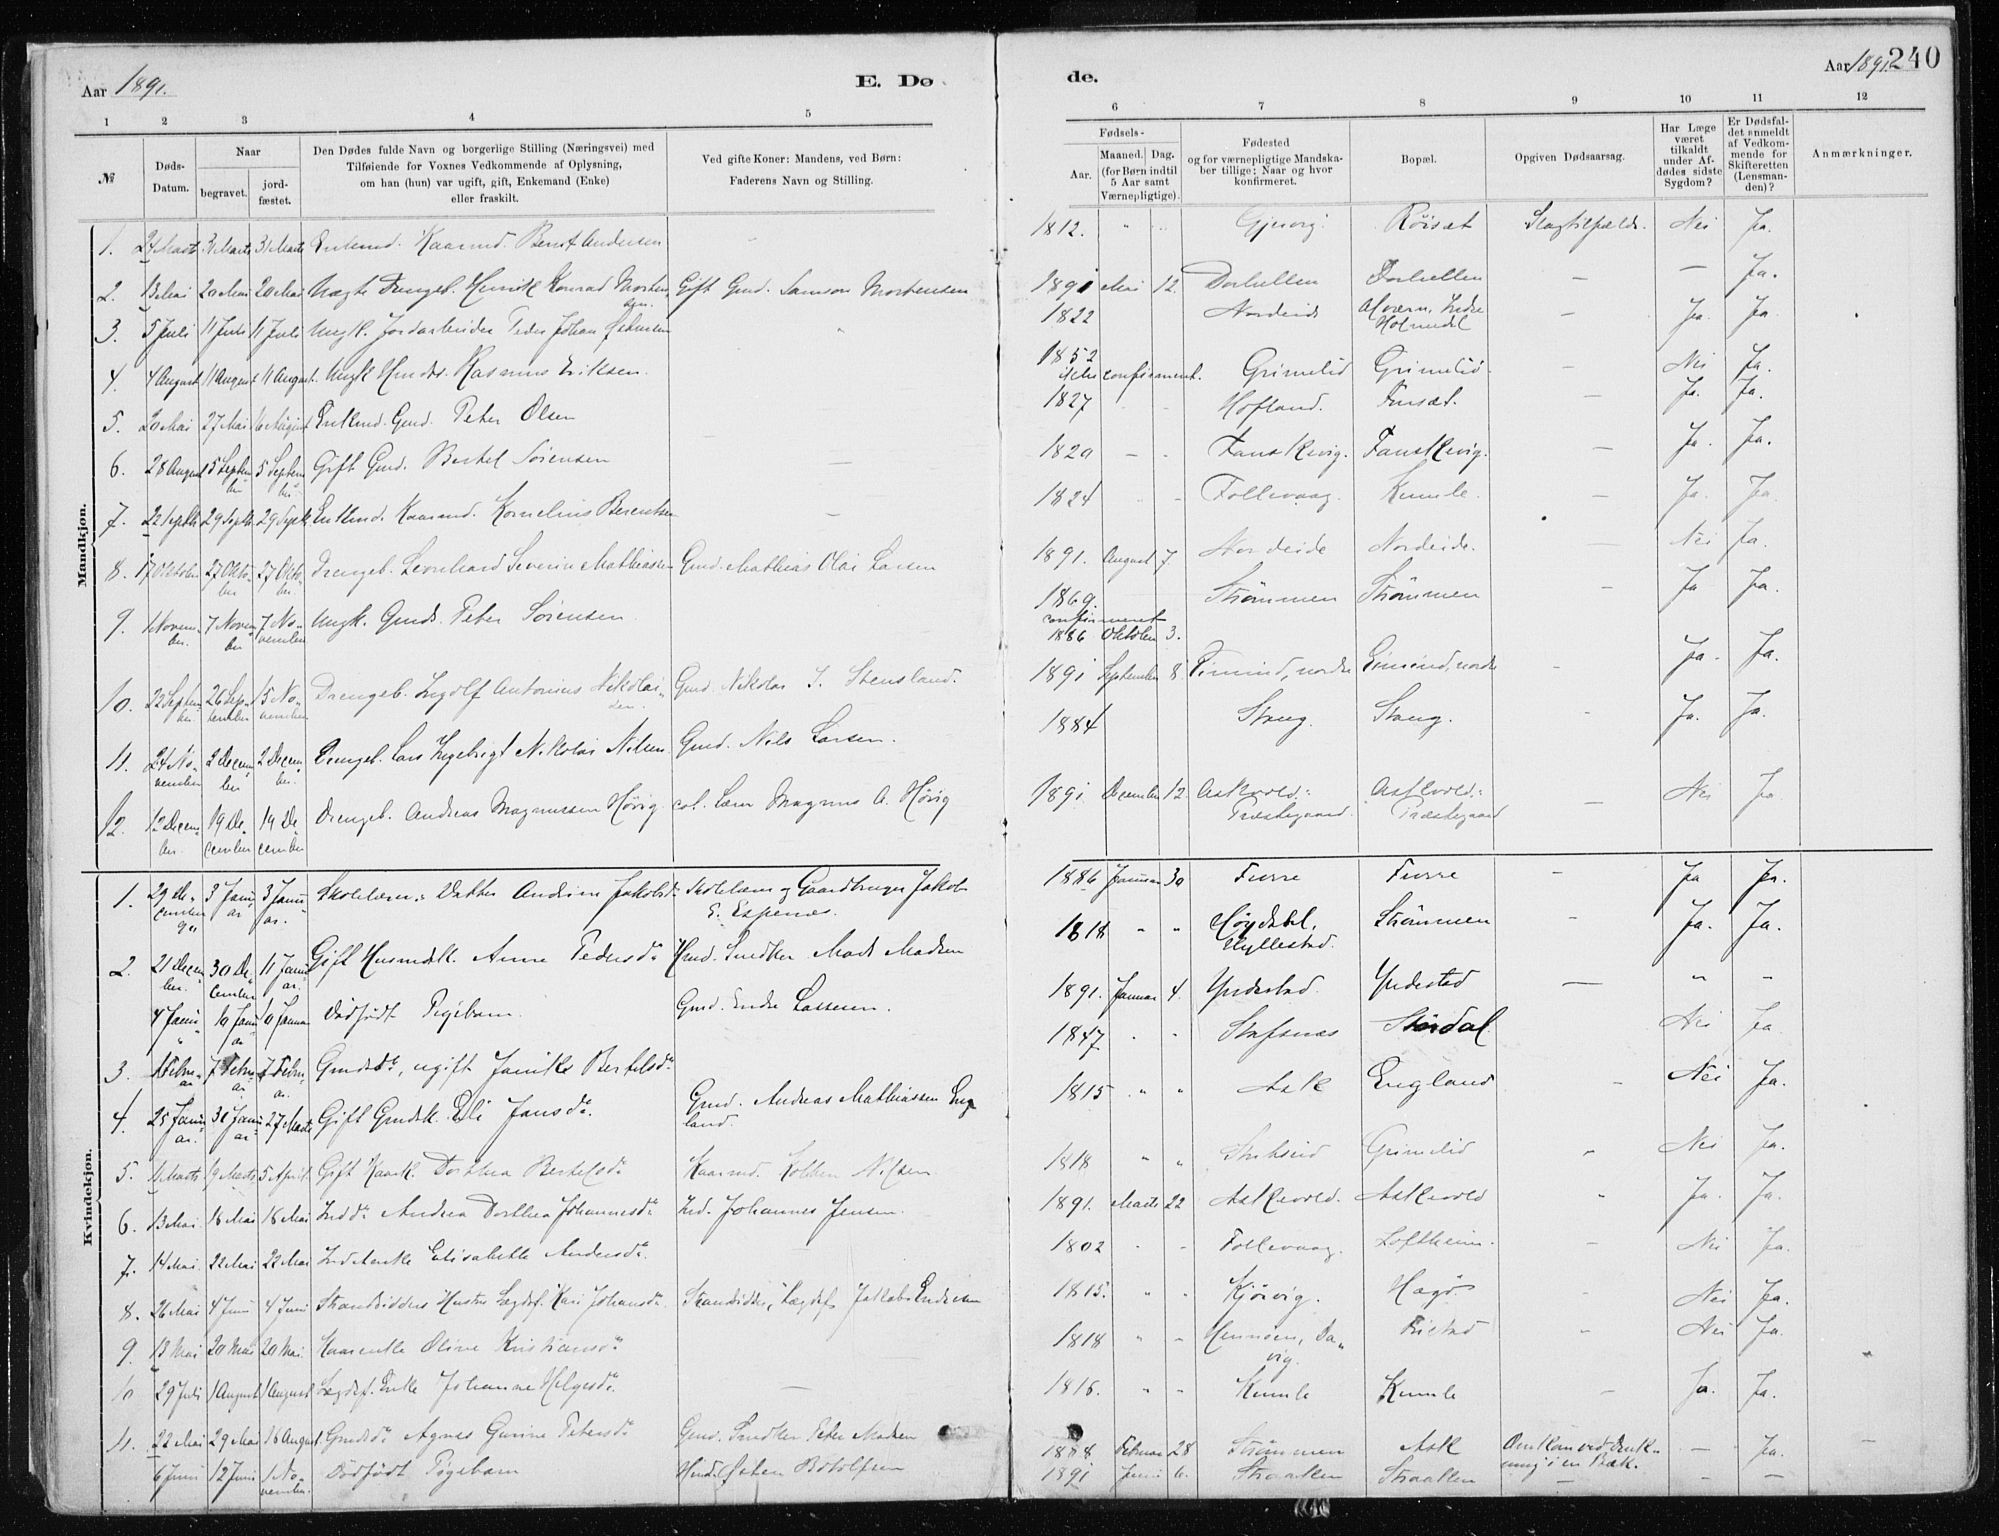 Aar 1891.
E. Dø
de.
Aar 1891. 240
1 2 3 4 5 6 7 8 9 10 11 12
№
Døds-
Datum.
Naar
begravet.
jord-
fæstet.
Den Dødes fulde Navn og borgerlige Stilling (Næringsvei) med
Tilføiende for Voxnes Vedkommende af Oplysning,
om han (hun) var ugift, gift, Enkemand (Enke)
eller fraskilt.
Ved gifte Koner: Mandens, ved Børn:
Faderens Navn og Stilling.
Fødsels-
Aar.
Maaned. Dag.
(for Børn indtil
5 Aar samt
Værnepligtige).
Fødested
og for værnepligtige Mandska-
ber tillige: Naar og hvor
konfirmeret.
Bopæl.
Opgiven Dødsaarsag.
Har Læge
været
tilkaldt
under Af-
dødes sidste
Sygdom?
Er Dødsfal-
det anmeldt
af Vedkom-
mende for
Skifteretten
(Lensman-
den)?
Anmærkninger.
Mandkjøn.
1. 24 Marts 31 Marts 31 Marts Enkemd. Kaarmd. Bernt Andersen 1812. " " Røiset Slagtilfælde. Nei Ja.
2. 13 Mai 20 Mai 20 Mai Ægte Drengeb. Henrik Konrad Morten-
sen. Gift Gmd. Samson Mortensen 1891 Mai 12. Dorhellen Dorhellen — — Ja.
3. 5 Juli 11 Juli 11 Juli Ungk. Jordarbeider Peder Johan " 1822 Nordeide Indre
Holmedal — Ja. Ja.
4. 4 August 11 August 11 August. Ungk. Rasmus Eriksen. 1852
ikke confirmeret. Grimelid Grimelid. — Nei Ja.
5. 20 Mai 27 Mai 16 August Enkmd. Gmd. Peter Olsen 1827 Hofland. — Ja. Ja.
6. 28 August 5 Septem-
ber 5 Septem-
ber Gift Gmd. Bertel Sørensen — 1829 — — Fanskevig. Fanskevig. — Ja. Ja.
7. 22 Septbr 29 Septbr 29 Septbr Enkmd. Kaarmd. Kornelius Berentsen — 1824 Follevaag. Kumle. — Ja. Ja.
8. 17 Oktober 27 Okto-
ber 27 Okto-
ber. Drengeb. Leonhard Severin Mathiassen Gmd. Mathias Olai Larsen 1891. August 7. Nordeide Nordeide. — Nei Ja.
9. 1 Novem-
ber. 7 Novem-
ber 7 No-
vember Ungk. Gmds. Peter Sørensen 1869.
confirmeret
1886 Oktober 3. Strømmen Strømmen Ja Ja.
10. 22 Septem-
ber. 26 Sep-
tember 15 No-
vember Drengeb. Ingolf Antonius Nikolai-
sen. Gmd. Nikolai J. Stensland. 1891 September 8. nordre nordre - Ja. Ja.
11. 24 No-
vember 2 Decem-
ber 2 Decem-
ber. Drengeb. Lars Ingebrigt Nikolai Nilsen Gmd. Nils Larsen. 1884 Stang. Stang. - Ja. Ja.
12. 12 Decem-
ber. 19 De-
cember 19 De-
cember Drengeb. Andreas Magnussen Høvig Magnus A. Høvig 1891 December 12. Askvold.:
Præstegaard. Askvold.:
Præstegaard — Nei Ja
Kvindekjøn.
1. 29 De-
cember
90 3 Janu-
ar 3 Janu-
ar. Skolelærer: Datter Andrine Jakobsd: Skolelærer og Gaardbruger Jakob
E. Espenes. 1886 Januar 30 Furre Furre — Ja Ja.
2. 21 Decem-
ber. 30 De-
cember 11 Janu-
ar. Gift Husmdsk. Anne Pedersdr Hmd. Snedker Mads Madsen 1818 " " Høydal,
Hyllestad. Strømmen Ja. Ja.
4 Janu-
" 19 Janu-
ar 19 Januar Dødfødt Pigebarn. Gmd. Endre Lassesen. 1891. Januar 4. Yndestad. Yndestad — " -
3. 1 Febru-
ar 7 Febru-
ar 7 Febru-
ar. Gmdsdr, ugift Janike Bertelsdr 1847 " " Stafsnes Størdal. Nei Ja
4. 25 Janu-
ar. 30 Janu-
ar 27 Marts Gift Gmdsk. Eli Jansdr. Gmd. Andreas Mathiassen Eng-
land. 1815 " " Ask England - Nei Ja.
5. 11 Marts 19 Marts 5 April Gift Kaark. Dorthea Bertelsdr Kaarmd. Kolben Nilsen 1818 " " Grimelid " Nei Ja.
6. 13 Mai. 18 Mai 18 Mai Inddr Andrea Dorthea Johannesdr Ind. Johannes Jensen. 1891. Marts 22 Askevold. Askevold " Ja. Ja.
7. 14 Mai. 22 Mai 22 Mai Ind.enke Elisabeth Andersdr. 1802 " " Follevaag. Loftheim. - Nei Ja.
8. 26 Mai 4 Juni 4 Juni Strandsidders Hustru Lægdsl. Kari Johansdr. Strandsidder, Lægdsl. Jakob Endresen 1815. " " Kjørvig. Hegø - Nei Ja.
9. 13 Mai 20 Mai 20 Mai. Kaarenke Oline Kristiansdr 1818 " " Da-
vig. " Nei Ja.
10 29 Juli 1 August 1 August Lægdsl. Enke Johanne Helgesdr. — 1816. " " Kumle Kumle — Ja. Ja.
11. 22 Mai 29 Mai 18 August Gmdsdr Agnes Gurine Petersdr Gmd. Snedker Peter Madsen 1888 Februar 28 Strømmen Ask Omkom ved Druk-
ning i en Bæk. — Ja.
6 Juni 12 Juni 1 No-
vember. Dødfødt Pigebarn Hmd. Botolfsen 1891 Juni 6. Straaten Straaten — — —